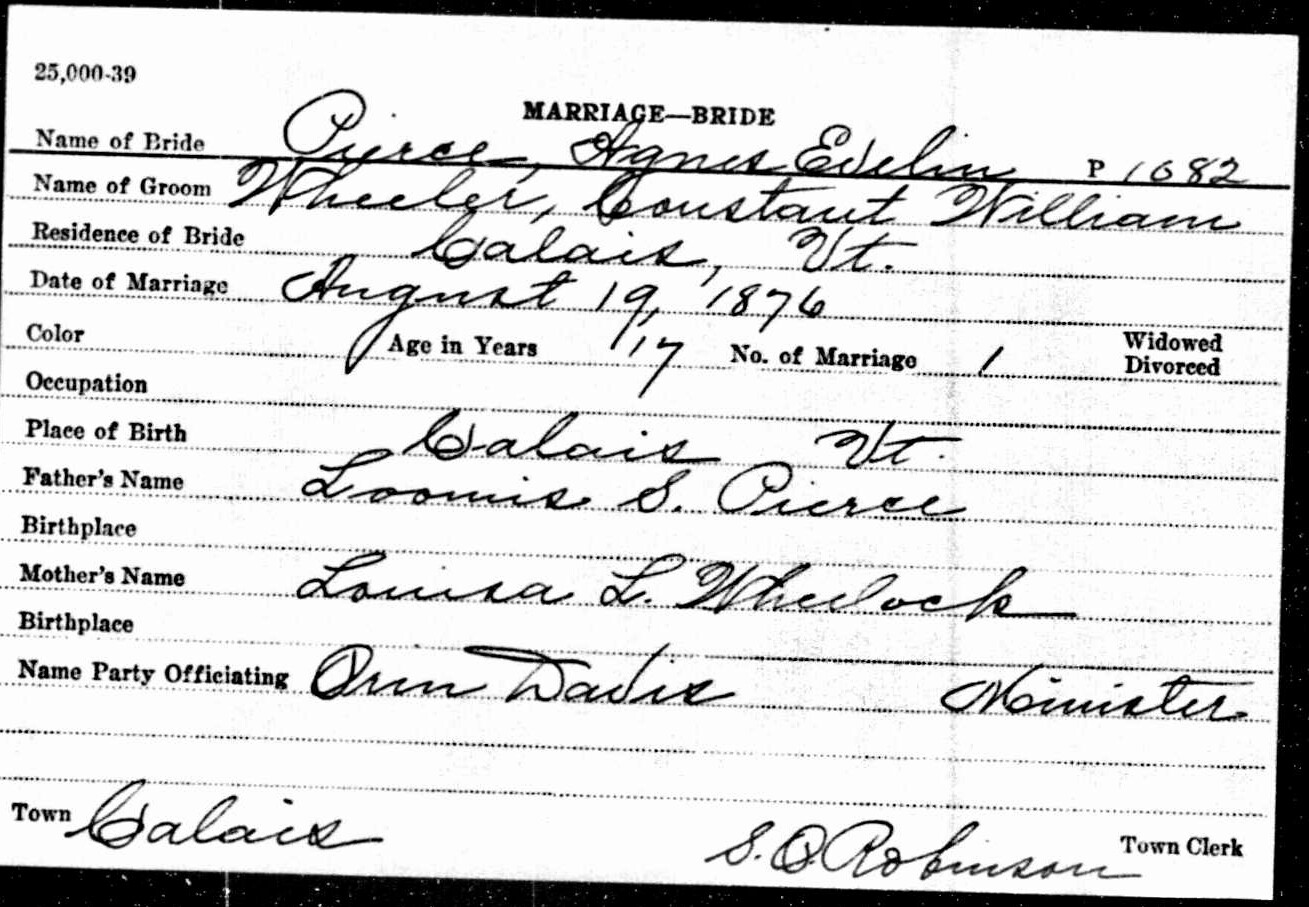 25,000-39
MARRIAGE—BRIDE
Name of Bride Pierce, Agnes Evelin P 1682
Name of Groom Wheeler, Constant William
Residence of Bride Calais, Vt.
Date of Marriage August 19, 1876
Color Age in Years 17 No. of Marriage 1 Widowed Divorced
Occupation
Place of Birth Calais Vt.
Father's Name Loomis S. Pierce
Birthplace
Mother's Name Louisa L. Wheelock
Birthplace
Name Party Officiating Orin Davis Minister
Town Calais S. O. Robinson Town Clerk